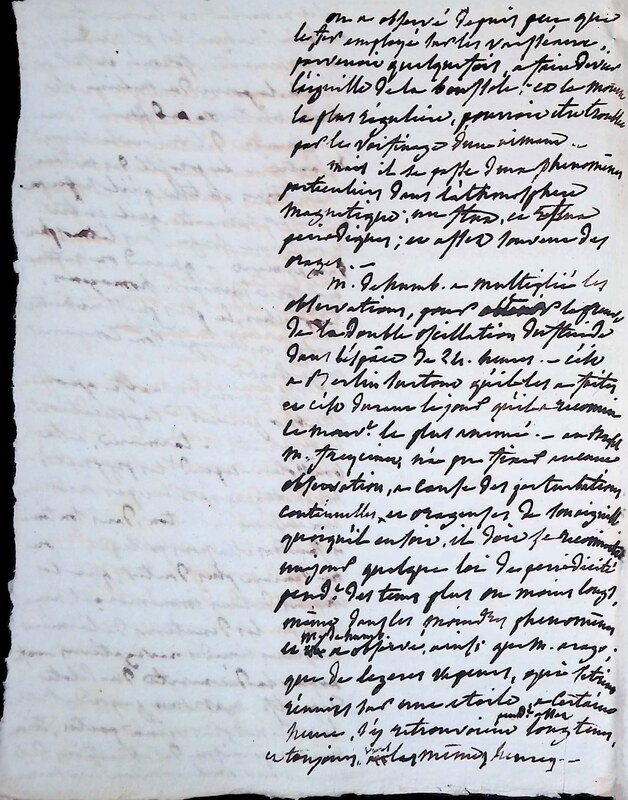 on a observé depuis peu que
le fer employé sur les vaisseaux,
pouvoit quelquefois, a faire devier
l'aiguille de la boussole; et la montre
la plus régulière, pourroit etre troublée
par le voisinage d'une aimant. –
mais il se passe d'un phenomènes
particuliers dans l'athmosphere
magnetique; un flux, et reflux
periodiques; et assez souvent des
orages. –
M. de humb. a multiplié les
observations, pour la preuve
de la double oscillation
dans l'espace de 24. heures. – c'est
a Berlin surtout qu'il les a faites
et c'est durant le jour qu'il a reconnu
le mouvt. le plus animé. –
M. freycinet, n'a pu faire aucune
observation, a cause des perturbations
continuelles, et orageuses de son aiguille
quoiqu'il en soit, il doit se reconnoitre
un jour quelque loi de periodicité
pendt. des tems plus ou moins longs,
même dans les moindres phenomènes
mr. de humb.
et a observé, ainsi que M. arago,
que de legeres vapeurs, qui s'etaient
réunies sur une etoile, a certaine
pendt.
heure, s'y retrouvoient longtems,
et toujours, vers les mêmes heures –